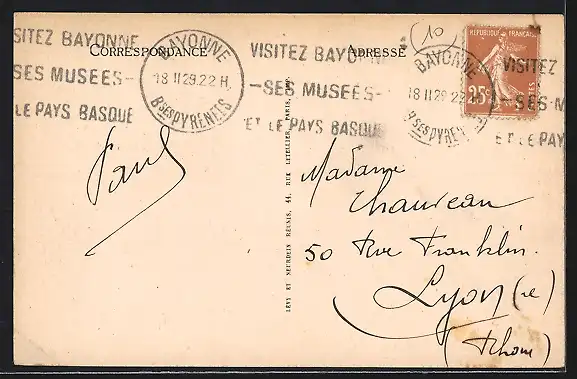 SITEZ BAYONNE
SES MUSEES-
LE PAYS BASQUE
CORRESPONDANCE
BAYONNE
18 II 29.22 H.
BSES PYRENEES
VISITEZ BAYONNE
-SES MUSEES-
ET LE PAYS BASQUE
ADRESSE
(10)
BAYONNE
18 II 29 22
BSES PYRENEES
REPUBLIQUE FRANÇAISE
25c
POSTES
VISITEZ
- SES M
ET LE PAY
Paul
LÉVY ET NEURDEIN RÉUNIS, 44, RUE LETELLIER, PARIS
Madame
Chaureau
50 Rue Franklin.
Lyon (re)
(Rhone)